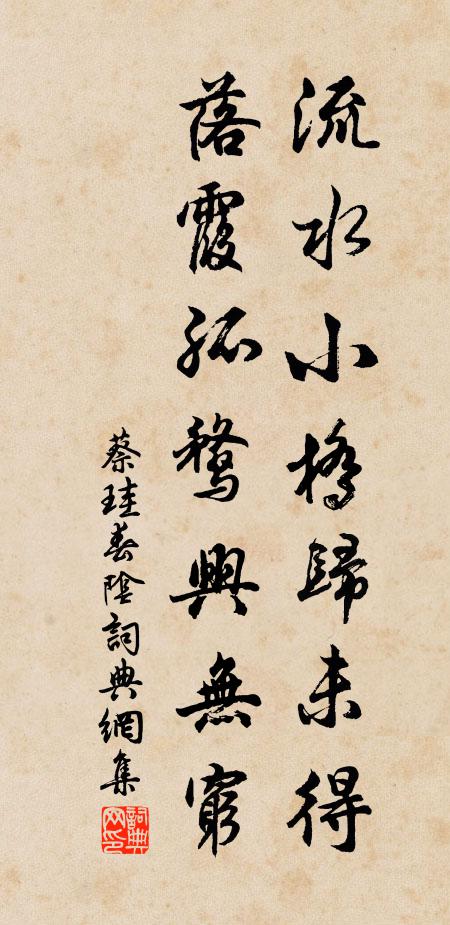 流水小橋歸未得
落霞孤鶩興無窮
蔡珪春陰詞典網集
詞典網印